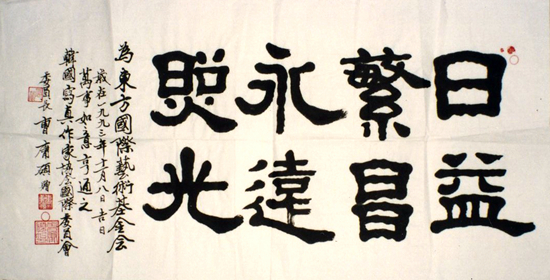 日益
繁昌
永遠
照光
為東方國際藝術基金会
歲在一九九三年十月八日吉日
萬事如意亨通之
韓國寫真作家協会國際委員會
委員長曹